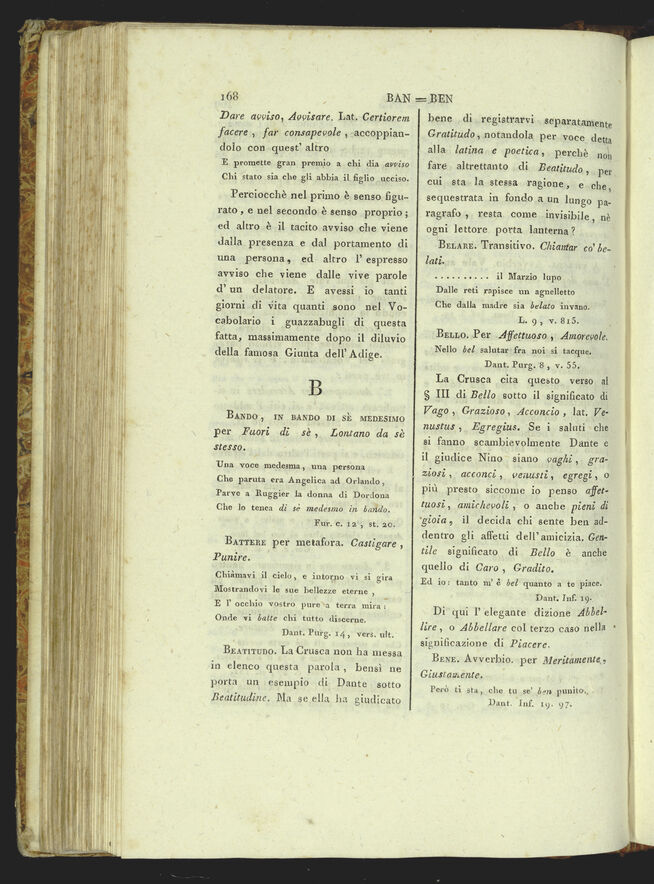 168
BAN = BEN
Dare avviso, Avvisare. Lat. Certiorem
facere, far consapevole, accoppian-
dolo con quest' altro
E promette gran premio a chi dia avviso
Chi stato sia che gli abbia il figlio ucciso.
Perciocchè nel primo è senso figu-
rato, e nel secondo è senso proprio;
ed altro è il tacito avviso che viene
dalla presenza e dal portamento di
una persona, ed altro l' espresso
avviso che viene dalle vive parole
d' un delatore. E avessi io tanti
giorni di vita quanti sono nel Vo-
cabolario i guazzabugli di questa
fatta, massimamente dopo il diluvio
della famosa Giunta dell' Adige.
B
BANDO, IN BANDO DI SÈ MEDESIMO
per Fuori di sè, Lontano da sè
stesso.
Una voce medesma, una persona
Che paruta era Angelica ad Orlando,
Parve a Ruggier la donna di Dordona
Che lo tenea di sè medesmo in bando.
Fur. c. 12, st. 20.
BATTERE per metafora. Castigare,
Punire.
Chiàmavi il cielo, e intorno vi si gira
Mostrandovi le sue bellezze eterne,
E l' occhio vostro pure a terra mira:
Onde vi batte chi tutto discerne.
Dant. Purg. 14, vers. ult.
BEATITUDO. La Crusca non ha messa
in elenco questa parola, bensì ne
porta un esempio di Dante sotto
Beatitudine. Ma se ella ha giudicato
bene di registrarvi separatamente
Gratitudo, notandola per voce detta
alla latina e poetica, perchè non
fare altrettanto di Beatitudo, per
cui sta la stessa ragione, e che,
sequestrata in fondo a un lungo pa-
ragrafo, resta come invisibile, nè
ogni lettore porta lanterna?
BELARE. Transitivo. Chiamar co' be-
lati.
.......... il Marzio lupo
Dalle reti rapisce un agnelletto
Che dalla madre sia belato invano.
L. 9, v. 815.
BELLO. Per Affettuoso, Amorevole.
Nullo bel salutar fra noi si tacque.
Dant. Purg. 8, v. 55.
La Crusca cita questo verso al
§ III di Bello sotto il significato di
Vago, Grazioso, Acconcio, lat. Ve-
nustus, Egregius. Se i saluti che
si fanno scambievolmente Dante e
il giudice Nino siano vaghi, gra-
ziosi, acconci, venusti, egregi, o
più presto siccome io penso affet-
tuosi, amichevoli, o anche pieni di
gioia, il decida chi sente ben ad-
dentro gli affetti dell' amicizia. Gen-
tile significato di Bello è anche
quello di Caro, Gradito.
Ed io: tanto m' è bel quanto a te piace.
Dant. Inf. 19.
Di qui l' elegante dizione Abbel-
lire, o Abbellare col terzo caso nella
significazione di Piacere.
BENE. Avverbio. per Meritamente,
Giustamente.
Però ti sta, che tu se' ben punito.
Dant. Inf. 19. 97.